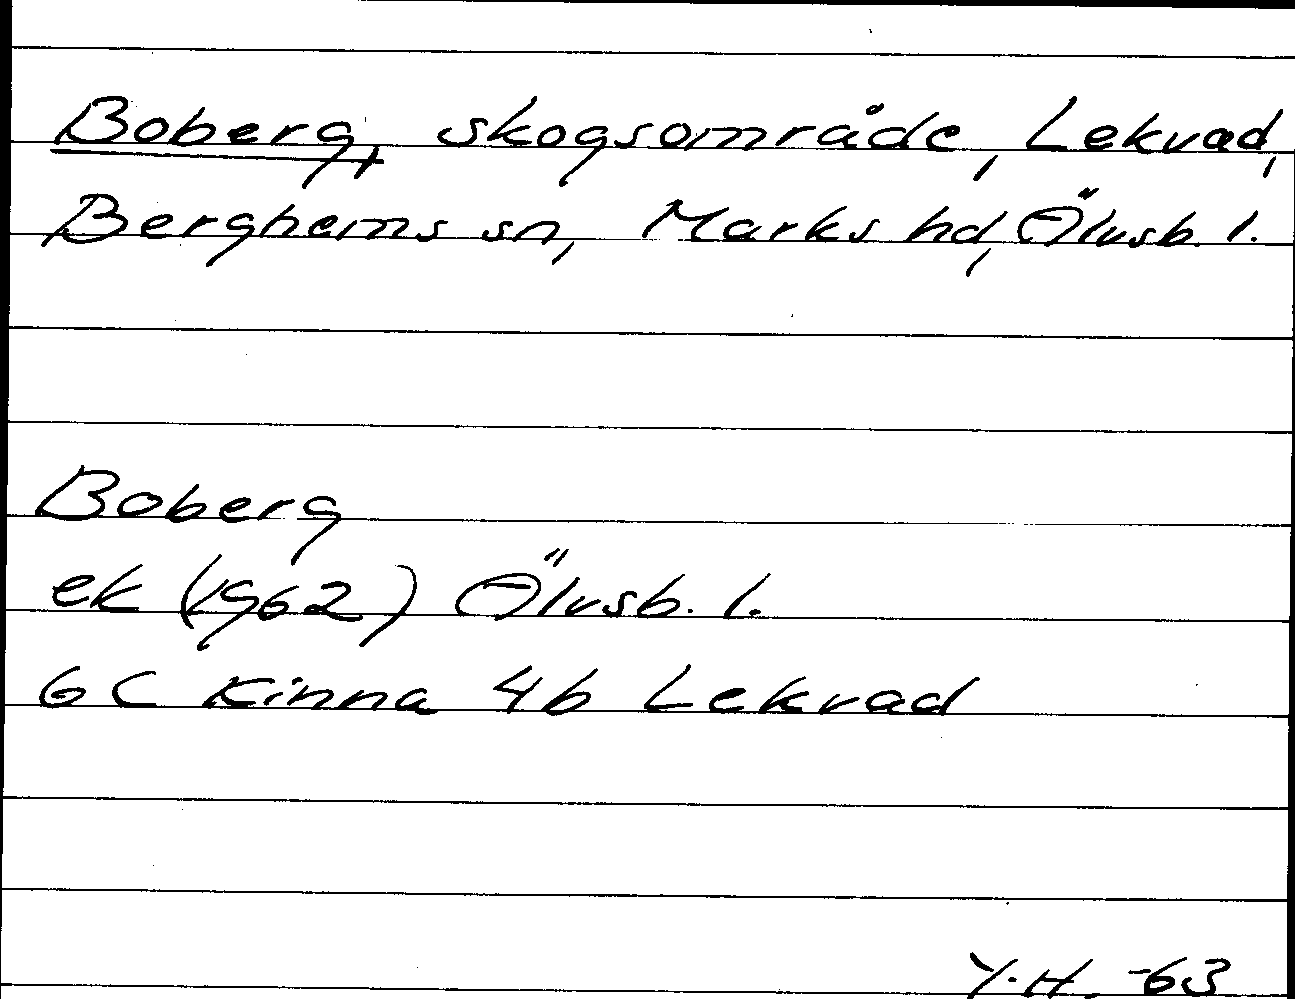 Boberg, skogsområde, Lekvad,
Berghems sn, Marks hd, Älvsb. l.
Boberg
ek (1962) Älvsb. l.
6 C Kinna 4b Lekvad
Y.H. -63